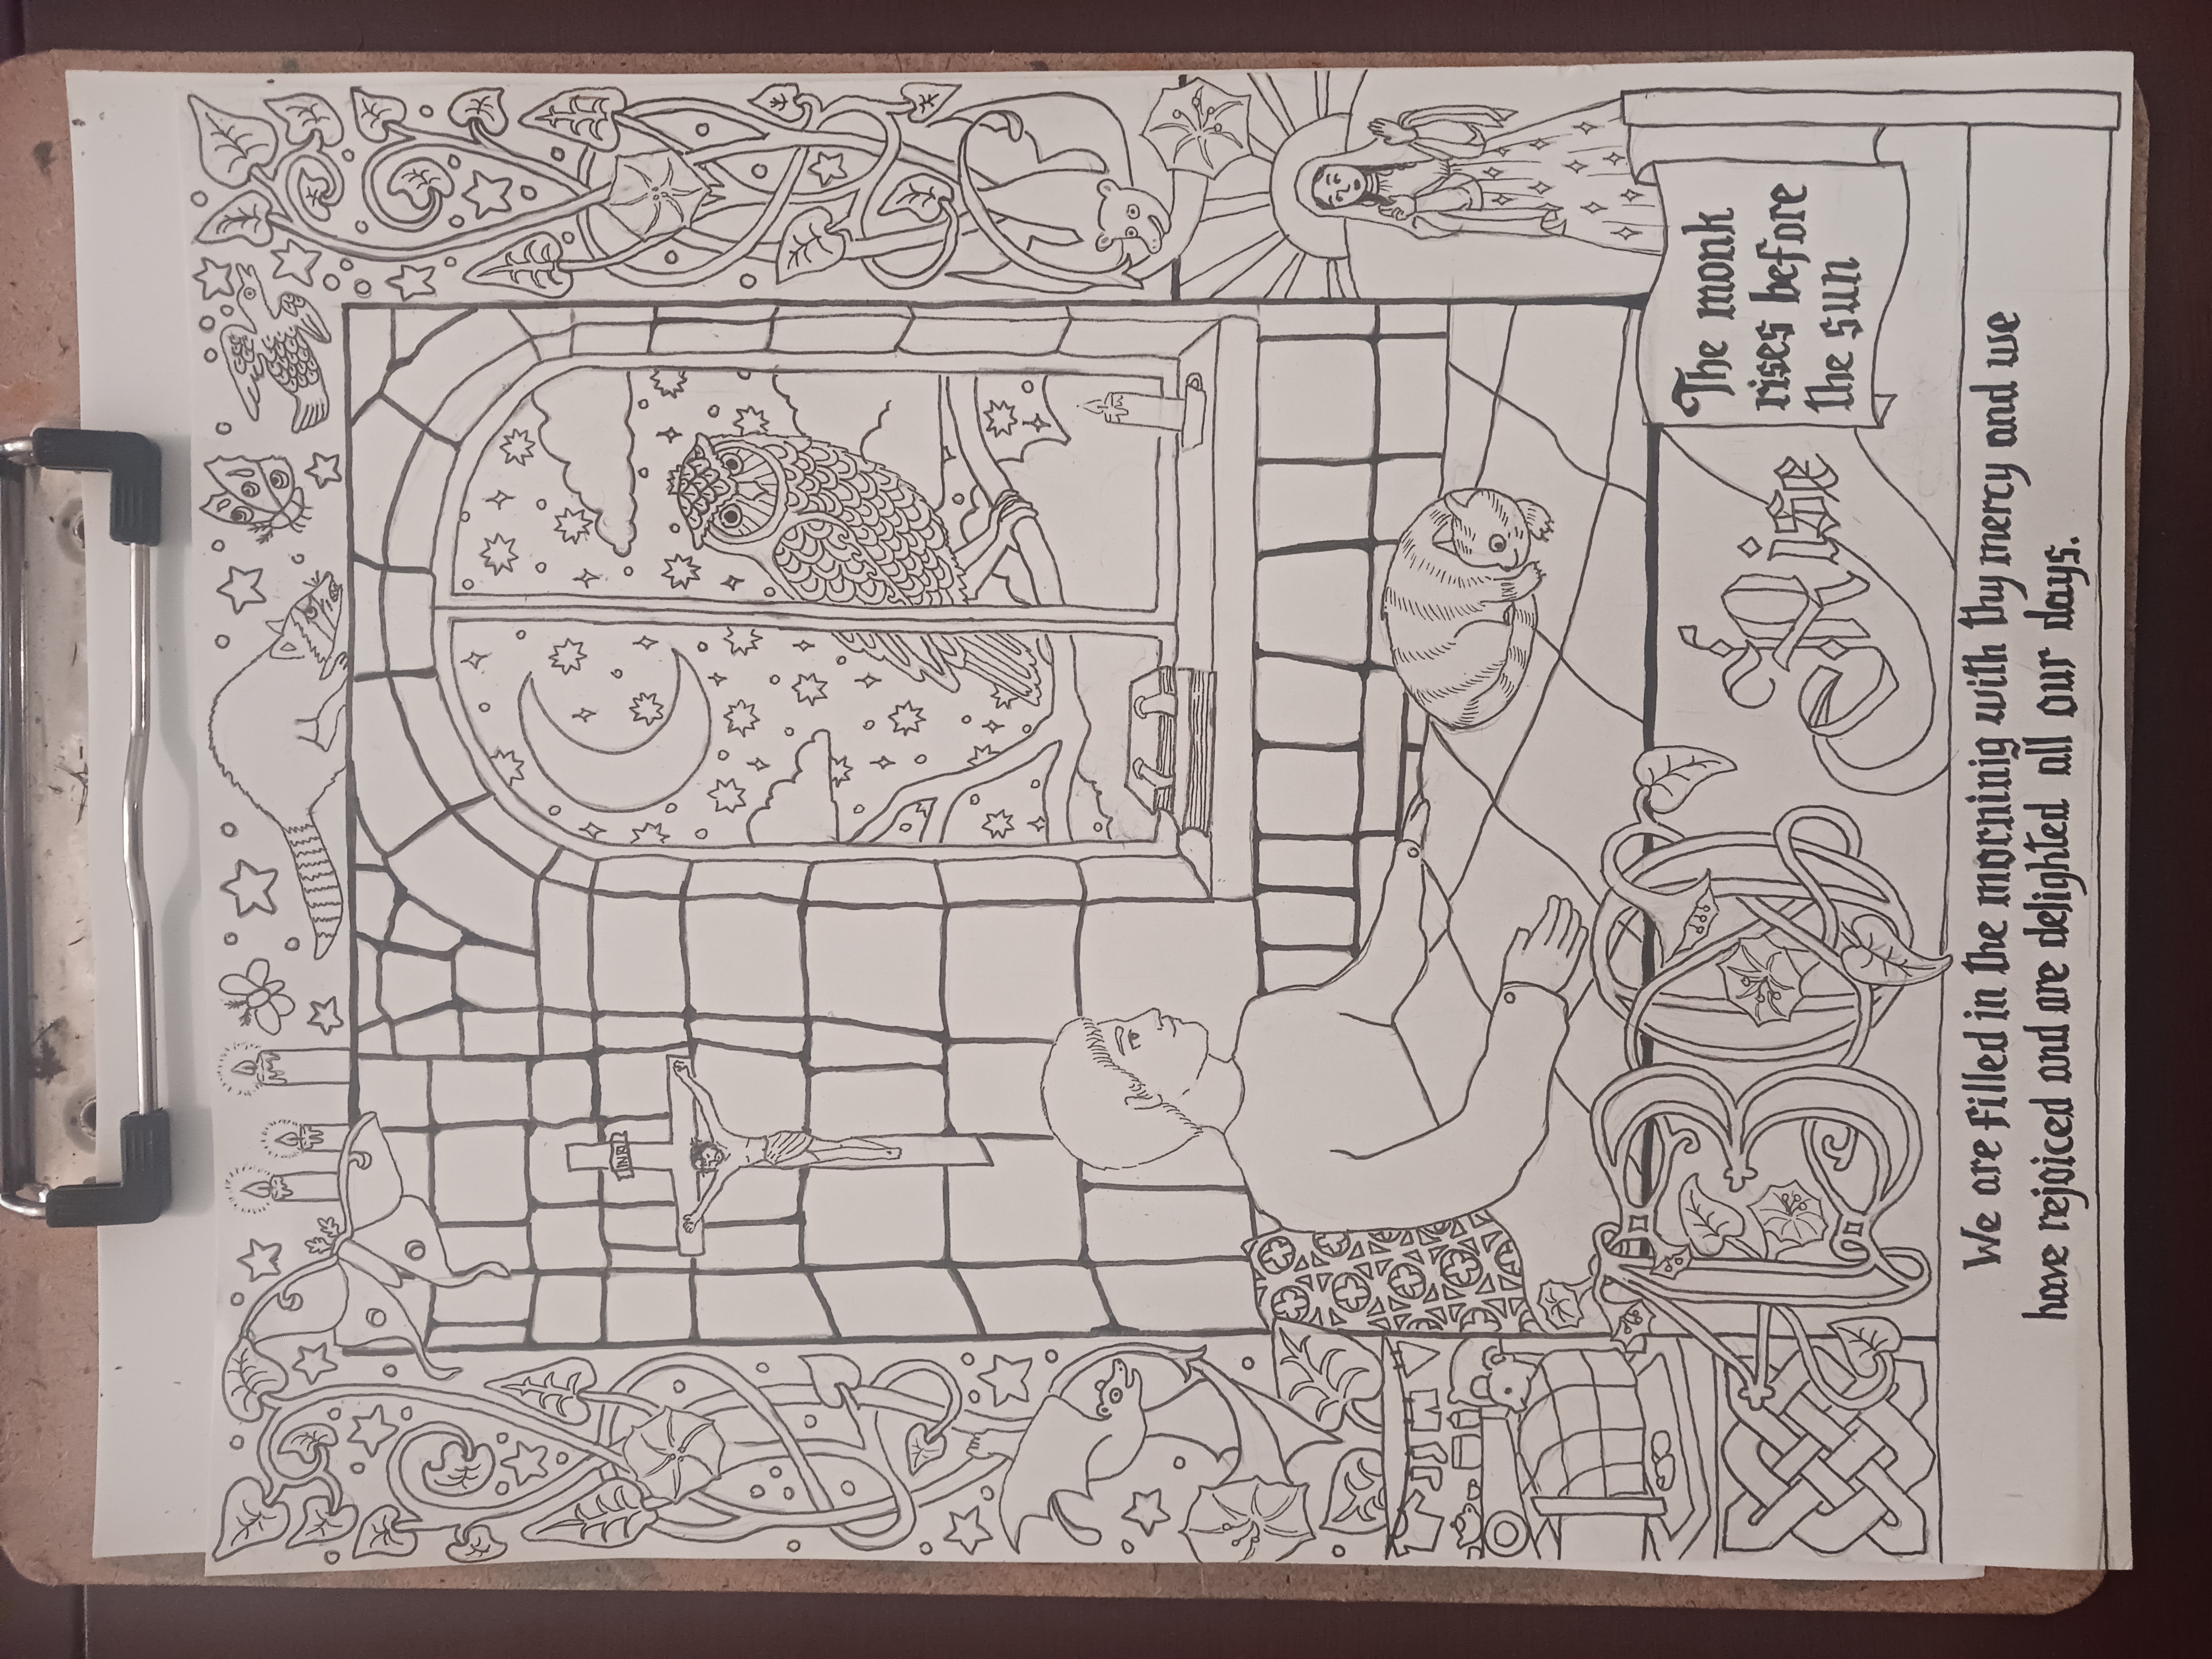 INRI
Rise
The monk
rises before
the sun
We are filled in the morninig with thy mercy and we
have rejoiced and are delighted all our days.